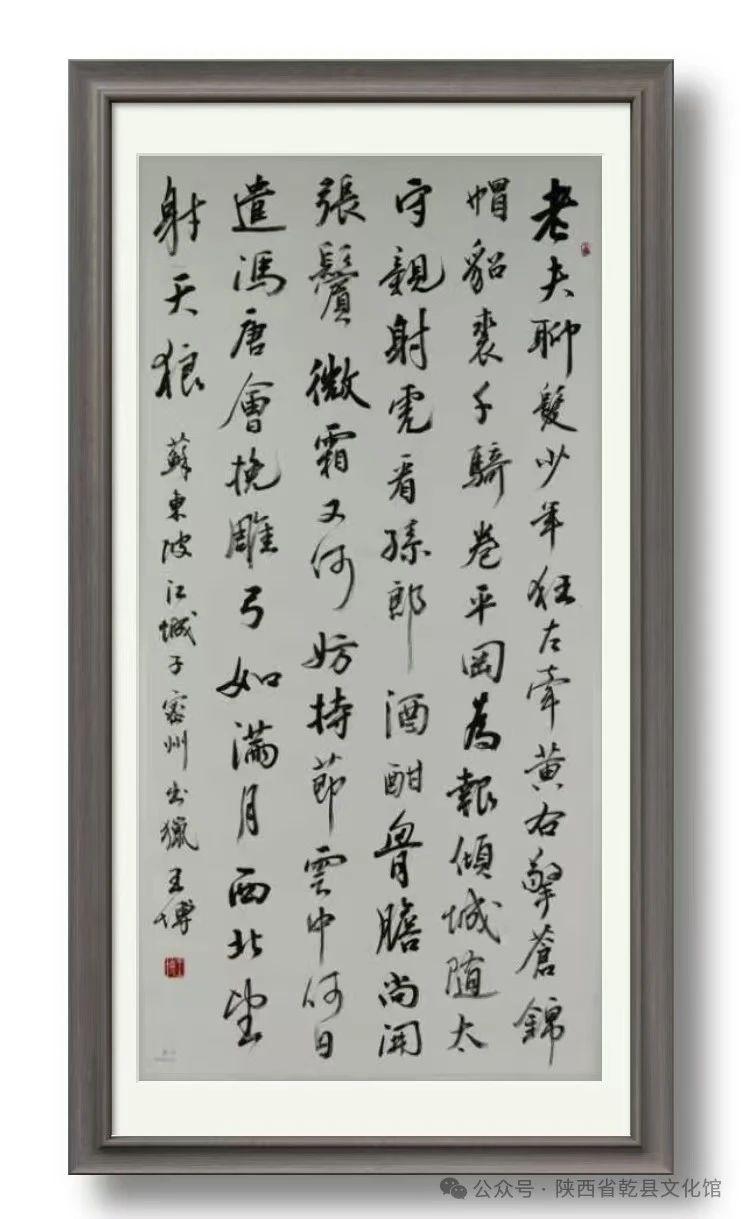 老夫聊發少年狂左牽黄右擎蒼錦
帽貂裘千騎卷平岡為報傾城随太
守親射虎看孫郎酒酣胷膽尚開
張鬢微霜又何妨持節雲中何日
遣馮唐會挽雕弓如滿月西北望
射天狼
蘇東坡江城子密州出獵王博
公众号·陕西省乾县文化馆